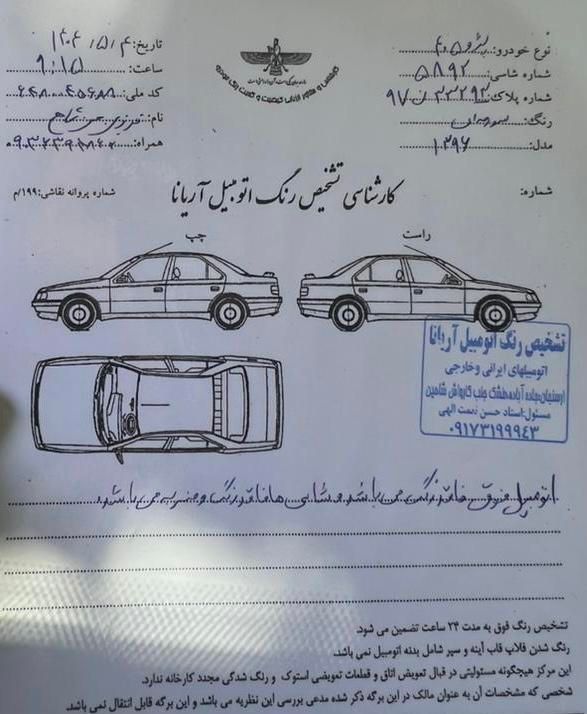 نوع خودرو: پژو ۴۰۵
تاریخ: ۱۴۰۴/۵/۴
شماره شاسی: ۵۸۹۲
ساعت: ۹:۱۵
شماره پلاک:
کد ملی:
رنگ:
نام:
مدل: ۱۳۹۶
همراه:
شماره:
کارشناسی تشخیص رنگ اتومبیل آریانا
شماره پروانه نقاشی: ۱۹۹/م
چپ
راست
تشخیص رنگ اتومبیل آریانا
اتومبیلهای ایرانی وخارجی
مسئول:استاد حسن نعمت الهی
۰۹۱۷۳۱۹۹۹۴۳
اتومبیل فوق فاقد رنگ می باشد و شاسی ها فاقد رنگ و ضربه می باشد
تشخیص رنگ فوق به مدت ۲۴ ساعت تضمین می شود.
رنگ شدن قلاب قاب آینه و سپر شامل بدنه اتومبیل نمی باشد.
این مرکز هیچگونه مسئولیتی در قبال تعویض اتاق و قطعات تعویضی استوک و رنگ شدگی مجدد کارخانه ندارد.
شخصی که مشخصات آن به عنوان مالک در این برگه ذکر شده مدعی بررسی این نظریه می باشد و این برگه قابل انتقال نمی باشد.